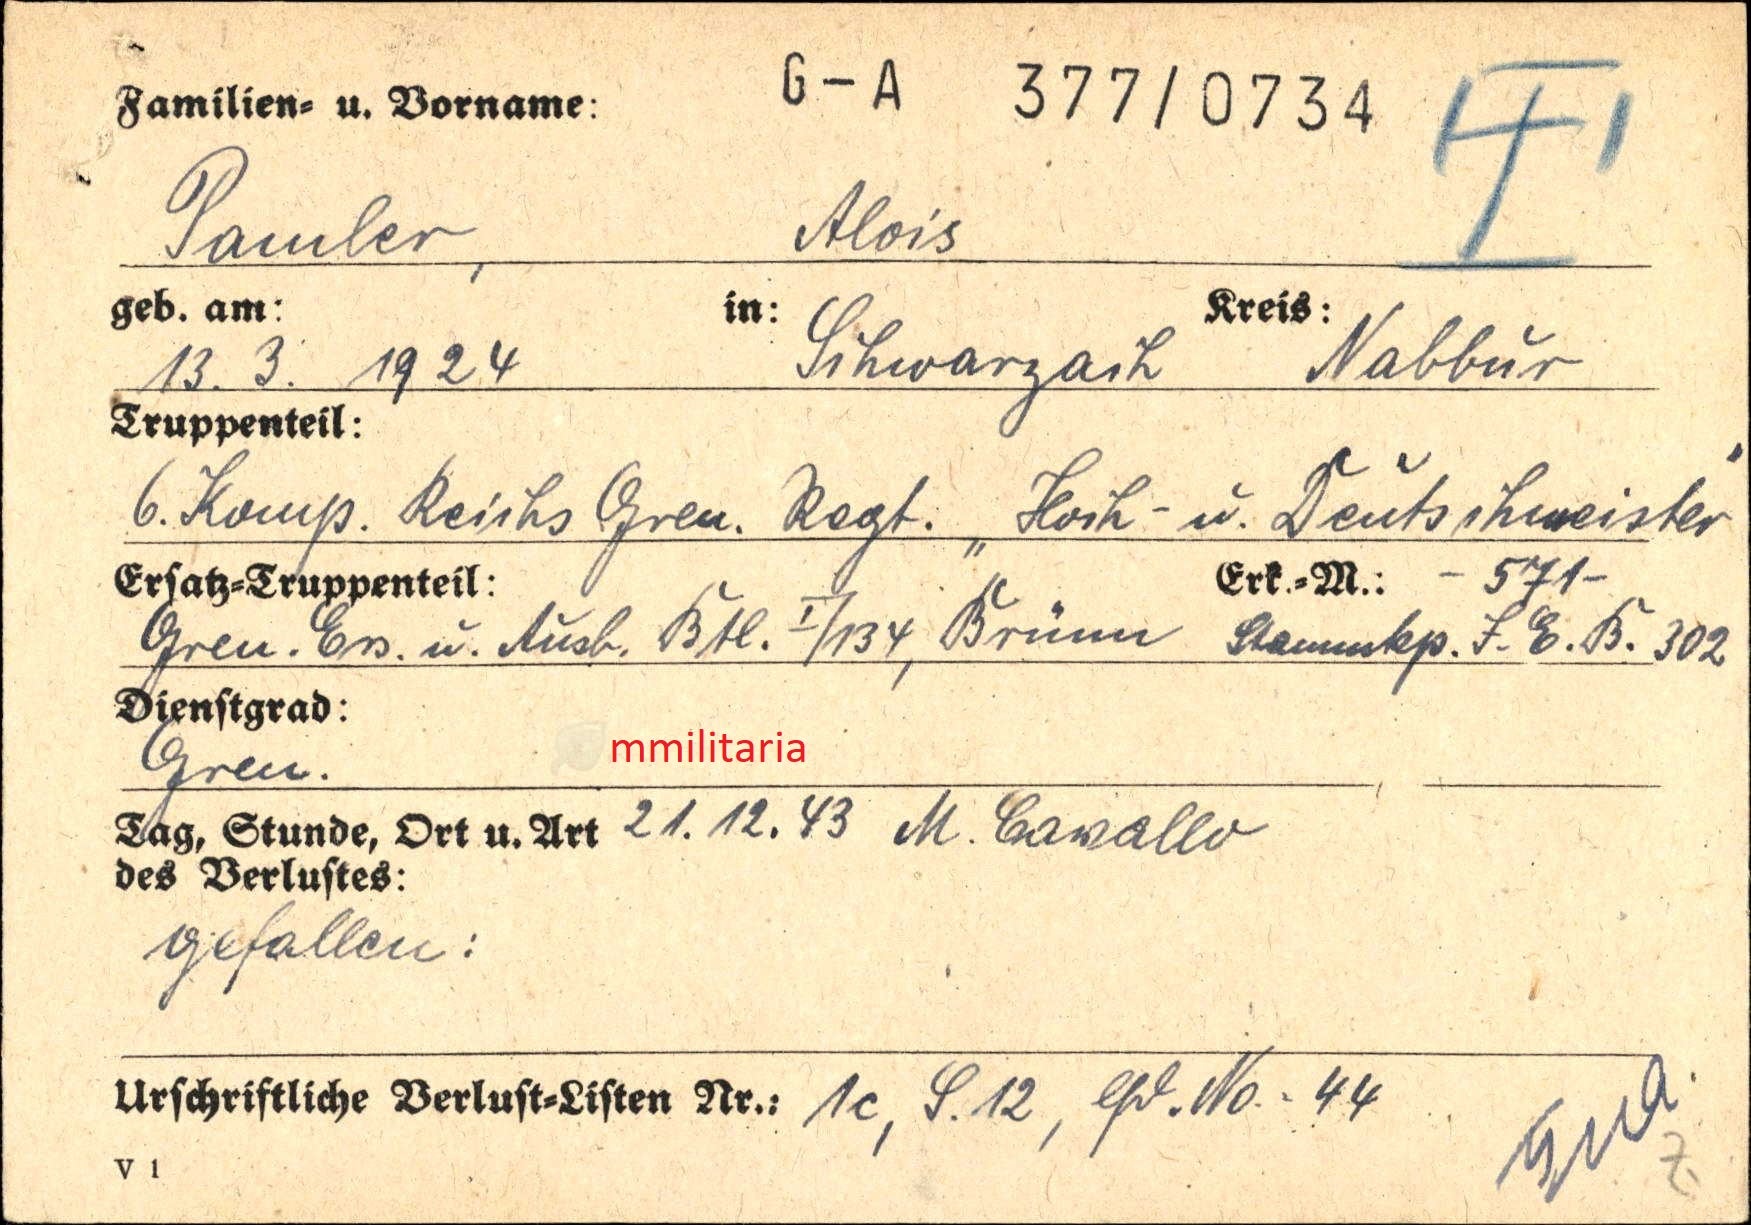 G-A 377/0734
Familien- u. Vorname:
Pamler, Alois
geb. am: in: Kreis:
13. 3. 1924 Schwarzach Nabbur
Truppenteil:
6. Komp. Reichs Gren. Regt. „Hoch- u. Deutschmeister"
Ersatz-Truppenteil: Erk.-M.: - 571-
Gren. Ers. u. Ausb. Btl. I/134, Brünn Stammkp. I. E. B. 302
Dienstgrad:
Gren.
mmilitaria
Tag, Stunde, Ort u. Art 21. 12. 43 M. Cavallo
des Verlustes:
gefallen:
Urschriftliche Verlust-Listen Nr.: 1c, S. 12, lfd. No. - 44
V 1